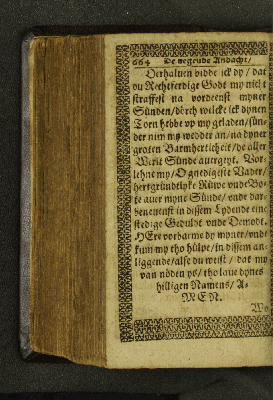 664 De negende Andacht/
Derhaluen bidde ick dy / dat
du Rechtferdige Godt my nicht
straffest na vordeenst myner
Sünden/dörch wilcke ick dynen
Torn hebbe vp my geladen/sün-
der nim my wedder an/na dyner
groten Barmherticheit/de aller
Werlt Sünde auergeyt. Vor-
lehne my/O gnedigeste Vader/
hertgründtlyke Rüwe vnde Bo-
te auer myne Sünde/ vnde dar-
beneuenst in dissem Lydende eine
stedige Gedult vnde Demodt.
HEre vorbarme dy myner/vnde
kum my tho hülpe/in dissem an-
liggende/alse du weist / dat my
van nöden ys/tho laue dynes
hilligen Namens/ A-
MEN.